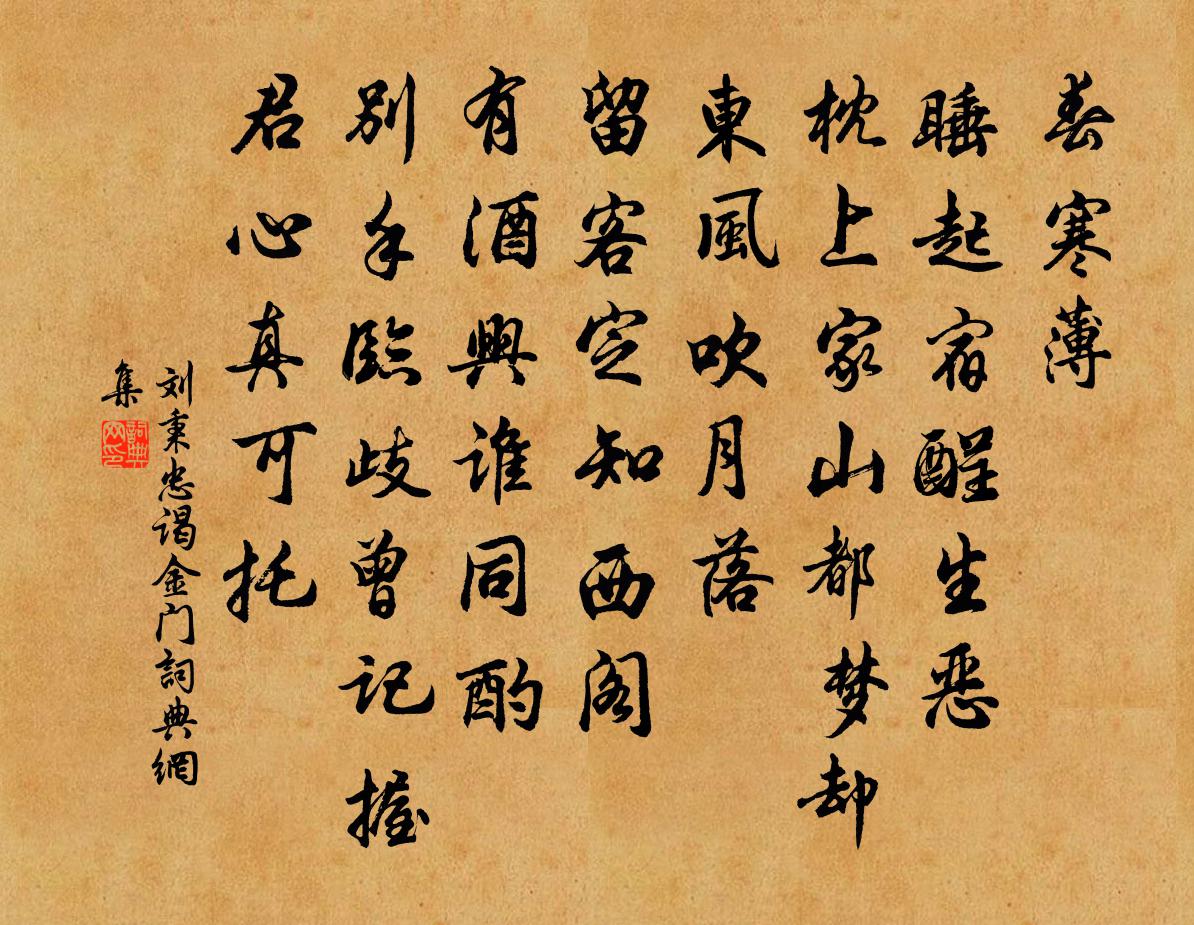 春寒薄
睡起宿酲生恶
枕上家山都梦却
東風吹月落
留客定知西阁
有酒興谁同酌
别手臨歧曾记握
君心真可托
刘秉忠谒金门詞典網
集
詞典網印